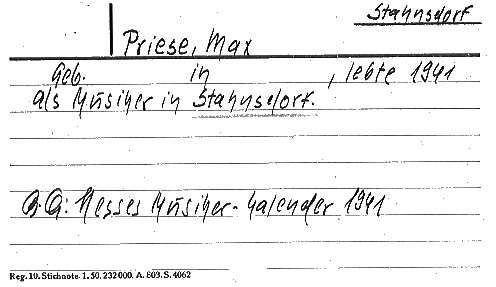 Stahnsdorf
Priese, Max
Geb. in , lebte 1941
als Musiker in Stahnsdorf.
B.Q: Hesses Musiker-Kalender 1941
Reg. 10. Stichnote. 1. 50. 232000. A. 803. S. 4062